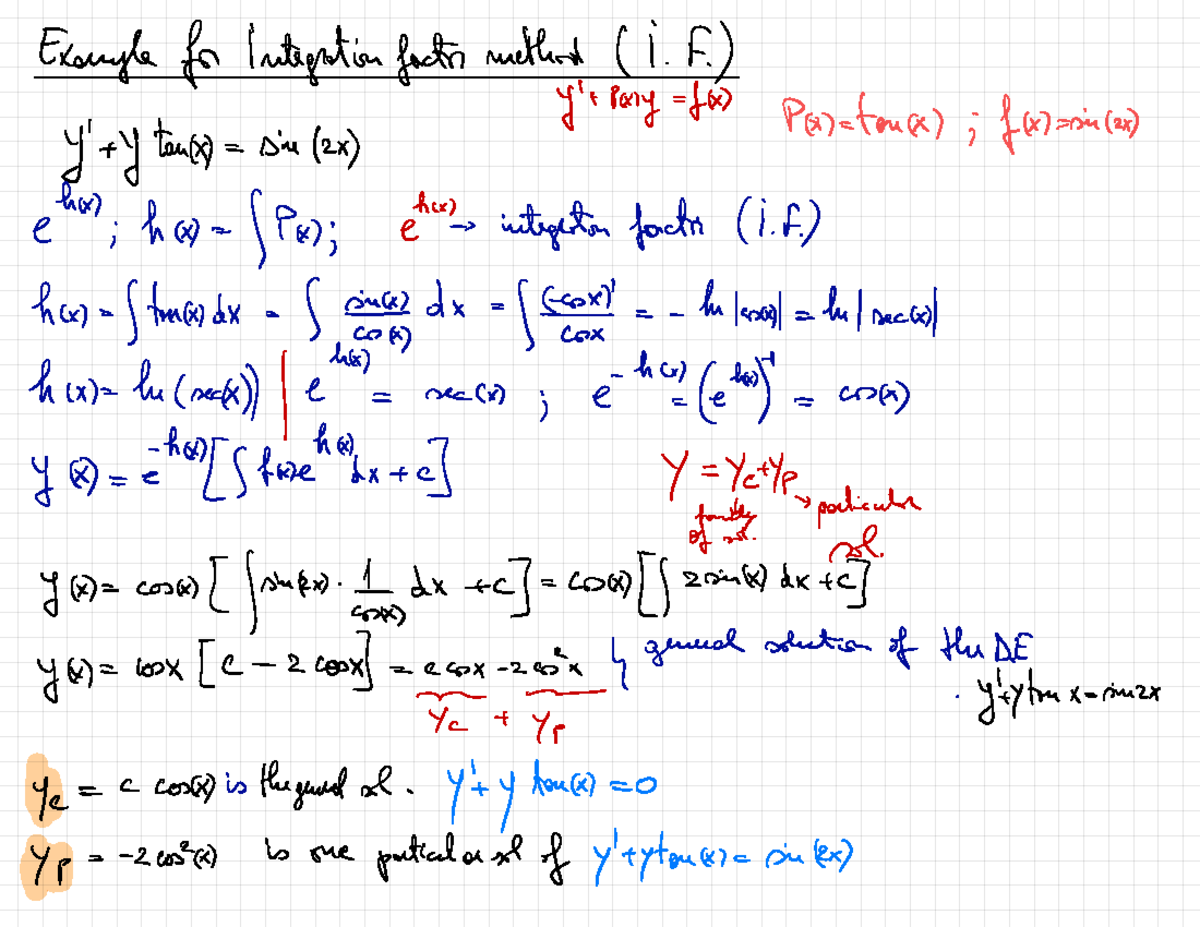 Example for Integration factor method (I. F.)
y' + P(x)y = f(x)
P(x) = tan(x) ; f(x) = sin(2x)
y' + y tan(x) = sin(2x)
e^{h(x)} ; h(x) = ∫ P(x) ; e^{h(x)} → integration factor (I.F.)
h(x) = ∫ tan(x) dx = ∫ sin(x)/cos(x) dx = ∫ (-cosx)'/cosx = - ln |cos(x)| = ln | sec(x)|
h(x) = ln (sec(x)) | e^{h(x)} = sec(x) ; e^{-h(x)} = (e^{h(x)})^{-1} = cos(x)
y(x) = e^{-h(x)} [∫ f(x)e^{h(x)} dx + c]
Y = Y_c + Y_p → particular sol.
family of sol.
y(x) = cos(x) [ ∫ sin(2x) · 1/cos(x) dx + c ] = cos(x) [ ∫ 2sin(x) dx + c ]
y(x) = cosx [c - 2 cosx] = c cosx - 2 cos²x } general solution of the DE
. y'+ytan x = sin2x
Y_c + Y_p
y_c = c cos(x) is the general sol. y' + y tan(x) = 0
y_p = -2 cos²(x) is one particular sol of y'+ytan(x) = sin(2x)